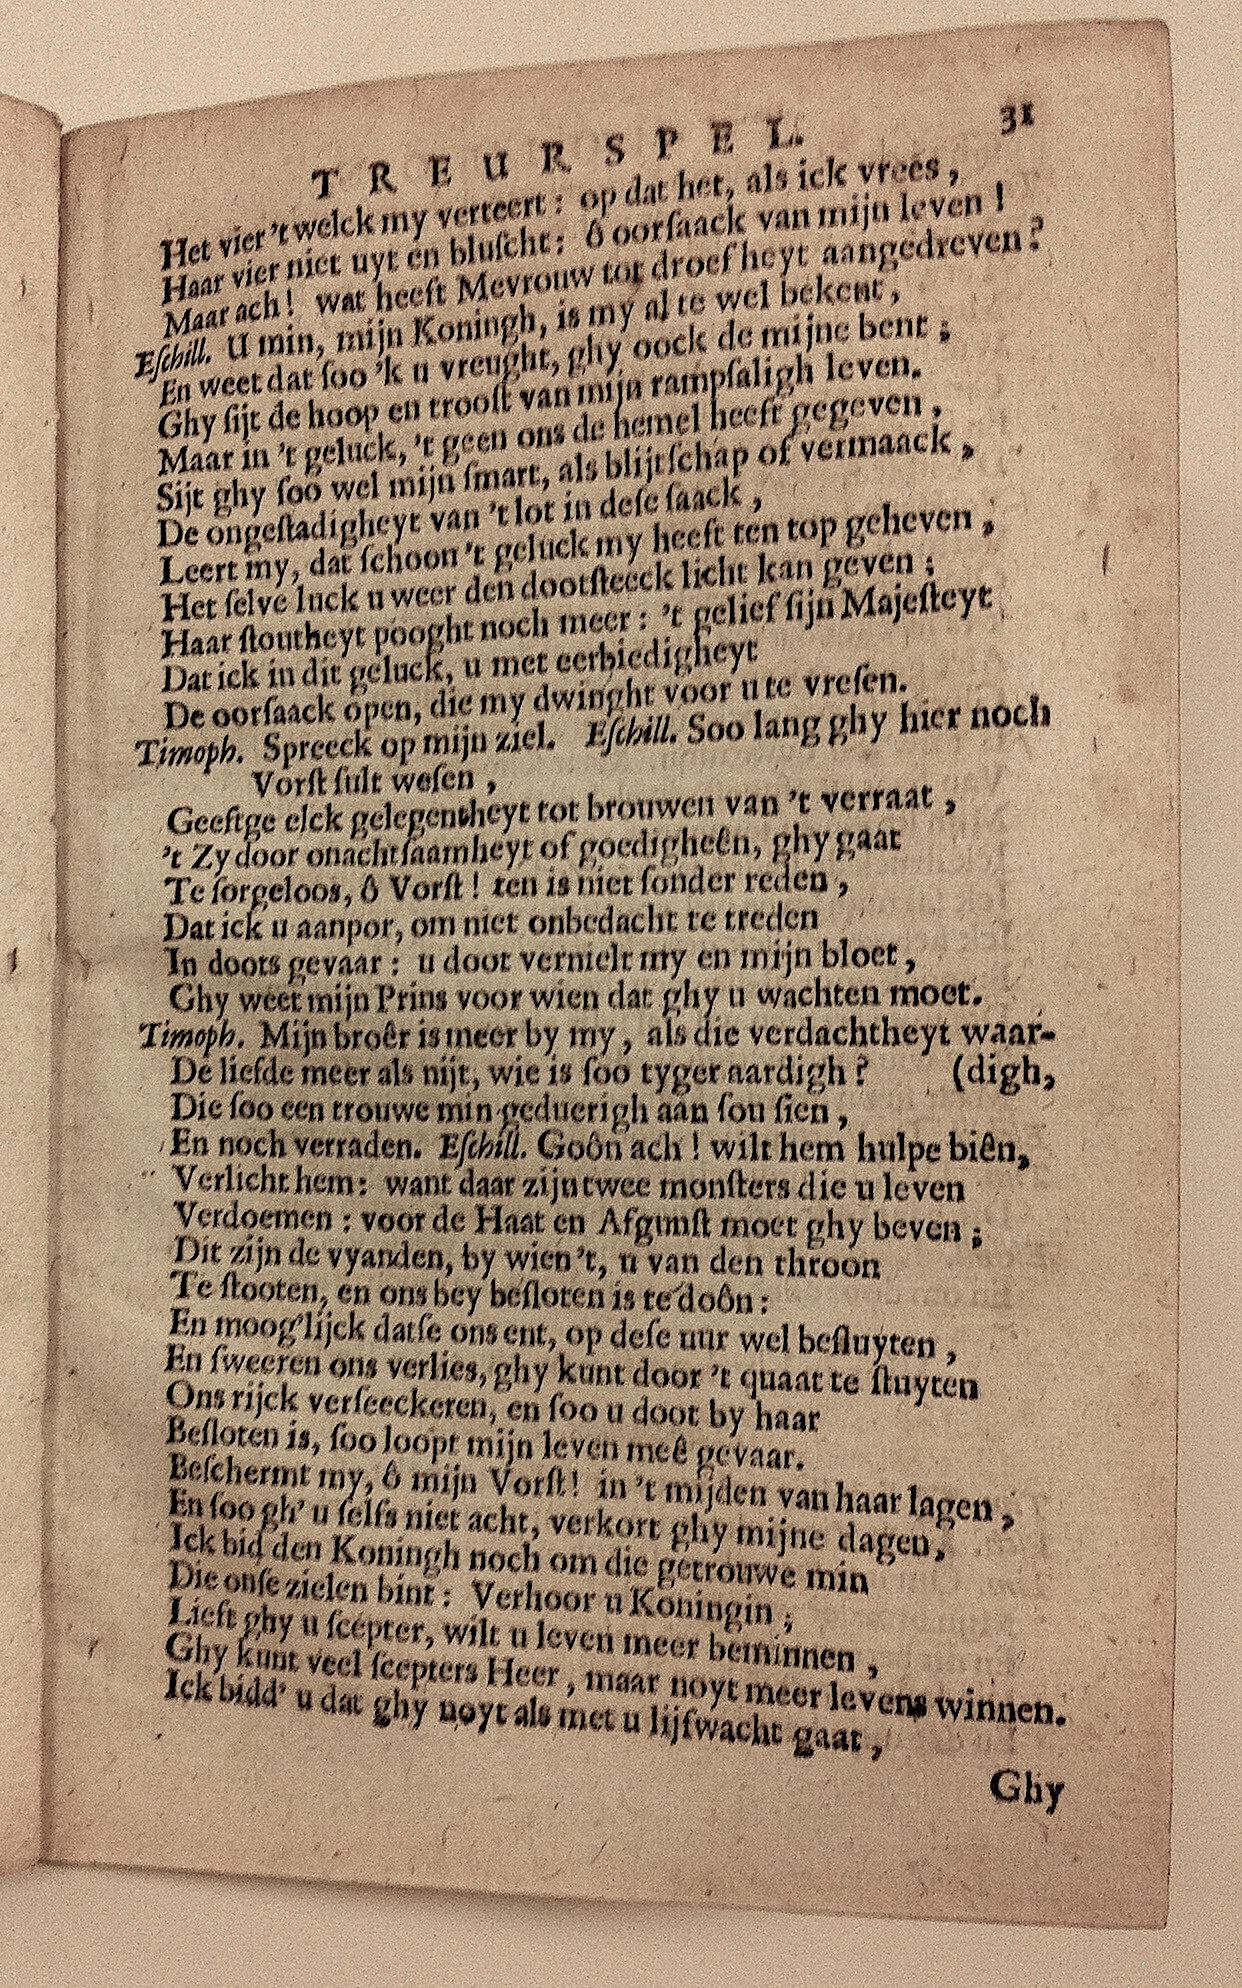 TREURSPEL. 31
Het vier 't welck my verteert: op dat het, als ick vrees,
Haar vier niet uyt en bluſcht: ô oorſaack van mijn leven!
Maar ach! wat heeft Mevrouw tot droef heyt aangedreven?
Eſchill. U min, mijn Koningh, is my al te wel bekent,
En weet dat ſoo 'k u vreught, ghy oock de mijne bent;
Ghy ſijt de hoop en trooſt van mijn rampſaligh leven.
Maar in 't geluck, 't geen ons de hemel heeft gegeven,
Sijt ghy ſoo wel mijn ſmart, als blijtſchap of vermaack,
De ongeſtadigheyt van 't lot in deſe ſaack,
Leert my, dat ſchoon 't geluck my heeft ten top geheven,
Het ſelve luck u weer den dootſteeck licht kan geven;
Haar ſtoutheyt pooght noch meer: 't gelief ſijn Majeſteyt
Dat ick in dit geluck, u met eerbiedigheyt
De oorſaack open, die my dwinght voor u te vreſen.
Timoph. Spreeck op mijn ziel. Eſchill. Soo lang ghy hier noch
Vorſt ſult weſen,
Geeftge elck gelegentheyt tot brouwen van 't verraat,
't Zy door onachtſaamheyt of goedigheên, ghy gaat
Te ſorgeloos, ô Vorſt! ten is niet ſonder reden,
Dat ick u aanpor, om niet onbedacht te treden
In doots gevaar: u doot vernielt my en mijn bloet,
Ghy weet mijn Prins voor wien dat ghy u wachten moet.
Timoph. Mijn broêr is meer by my, als die verdachtheyt waar-
De liefde meer als nijt, wie is ſoo tyger aardigh? (digh,
Die ſoo een trouwe min geduerigh aan ſou ſien,
En noch verraden. Eſchill. Goôn ach! wilt hem hulpe biên,
Verlicht hem: want daar zijn twee monſters die u leven
Verdoemen: voor de Haat en Afgunſt moet ghy beven;
Dit zijn de vyanden, by wien 't, u van den throon
Te ſtooten, en ons bey beſloten is te doôn:
En moog'lijck datſe ons ent, op deſe uur wel beſluyten,
En ſweeren ons verlies, ghy kunt door 't quaat te ſtuyten
Ons rijck verſeeckeren, en ſoo u doot by haar
Beſloten is, ſoo loopt mijn leven meê gevaar.
Beſchermt my, ô mijn Vorſt! in 't mijden van haar lagen,
En ſoo gh' u ſelfs niet acht, verkort ghy mijne dagen,
Ick bid den Koningh noch om die getrouwe min
Die onſe zielen bint: Verhoor u Koningin;
Lieft ghy u ſcepter, wilt u leven meer beminnen,
Ghy kunt veel ſcepters Heer, maar noyt meer levens winnen.
Ick bidd' u dat ghy noyt als met u lijfwacht gaat,
Ghy